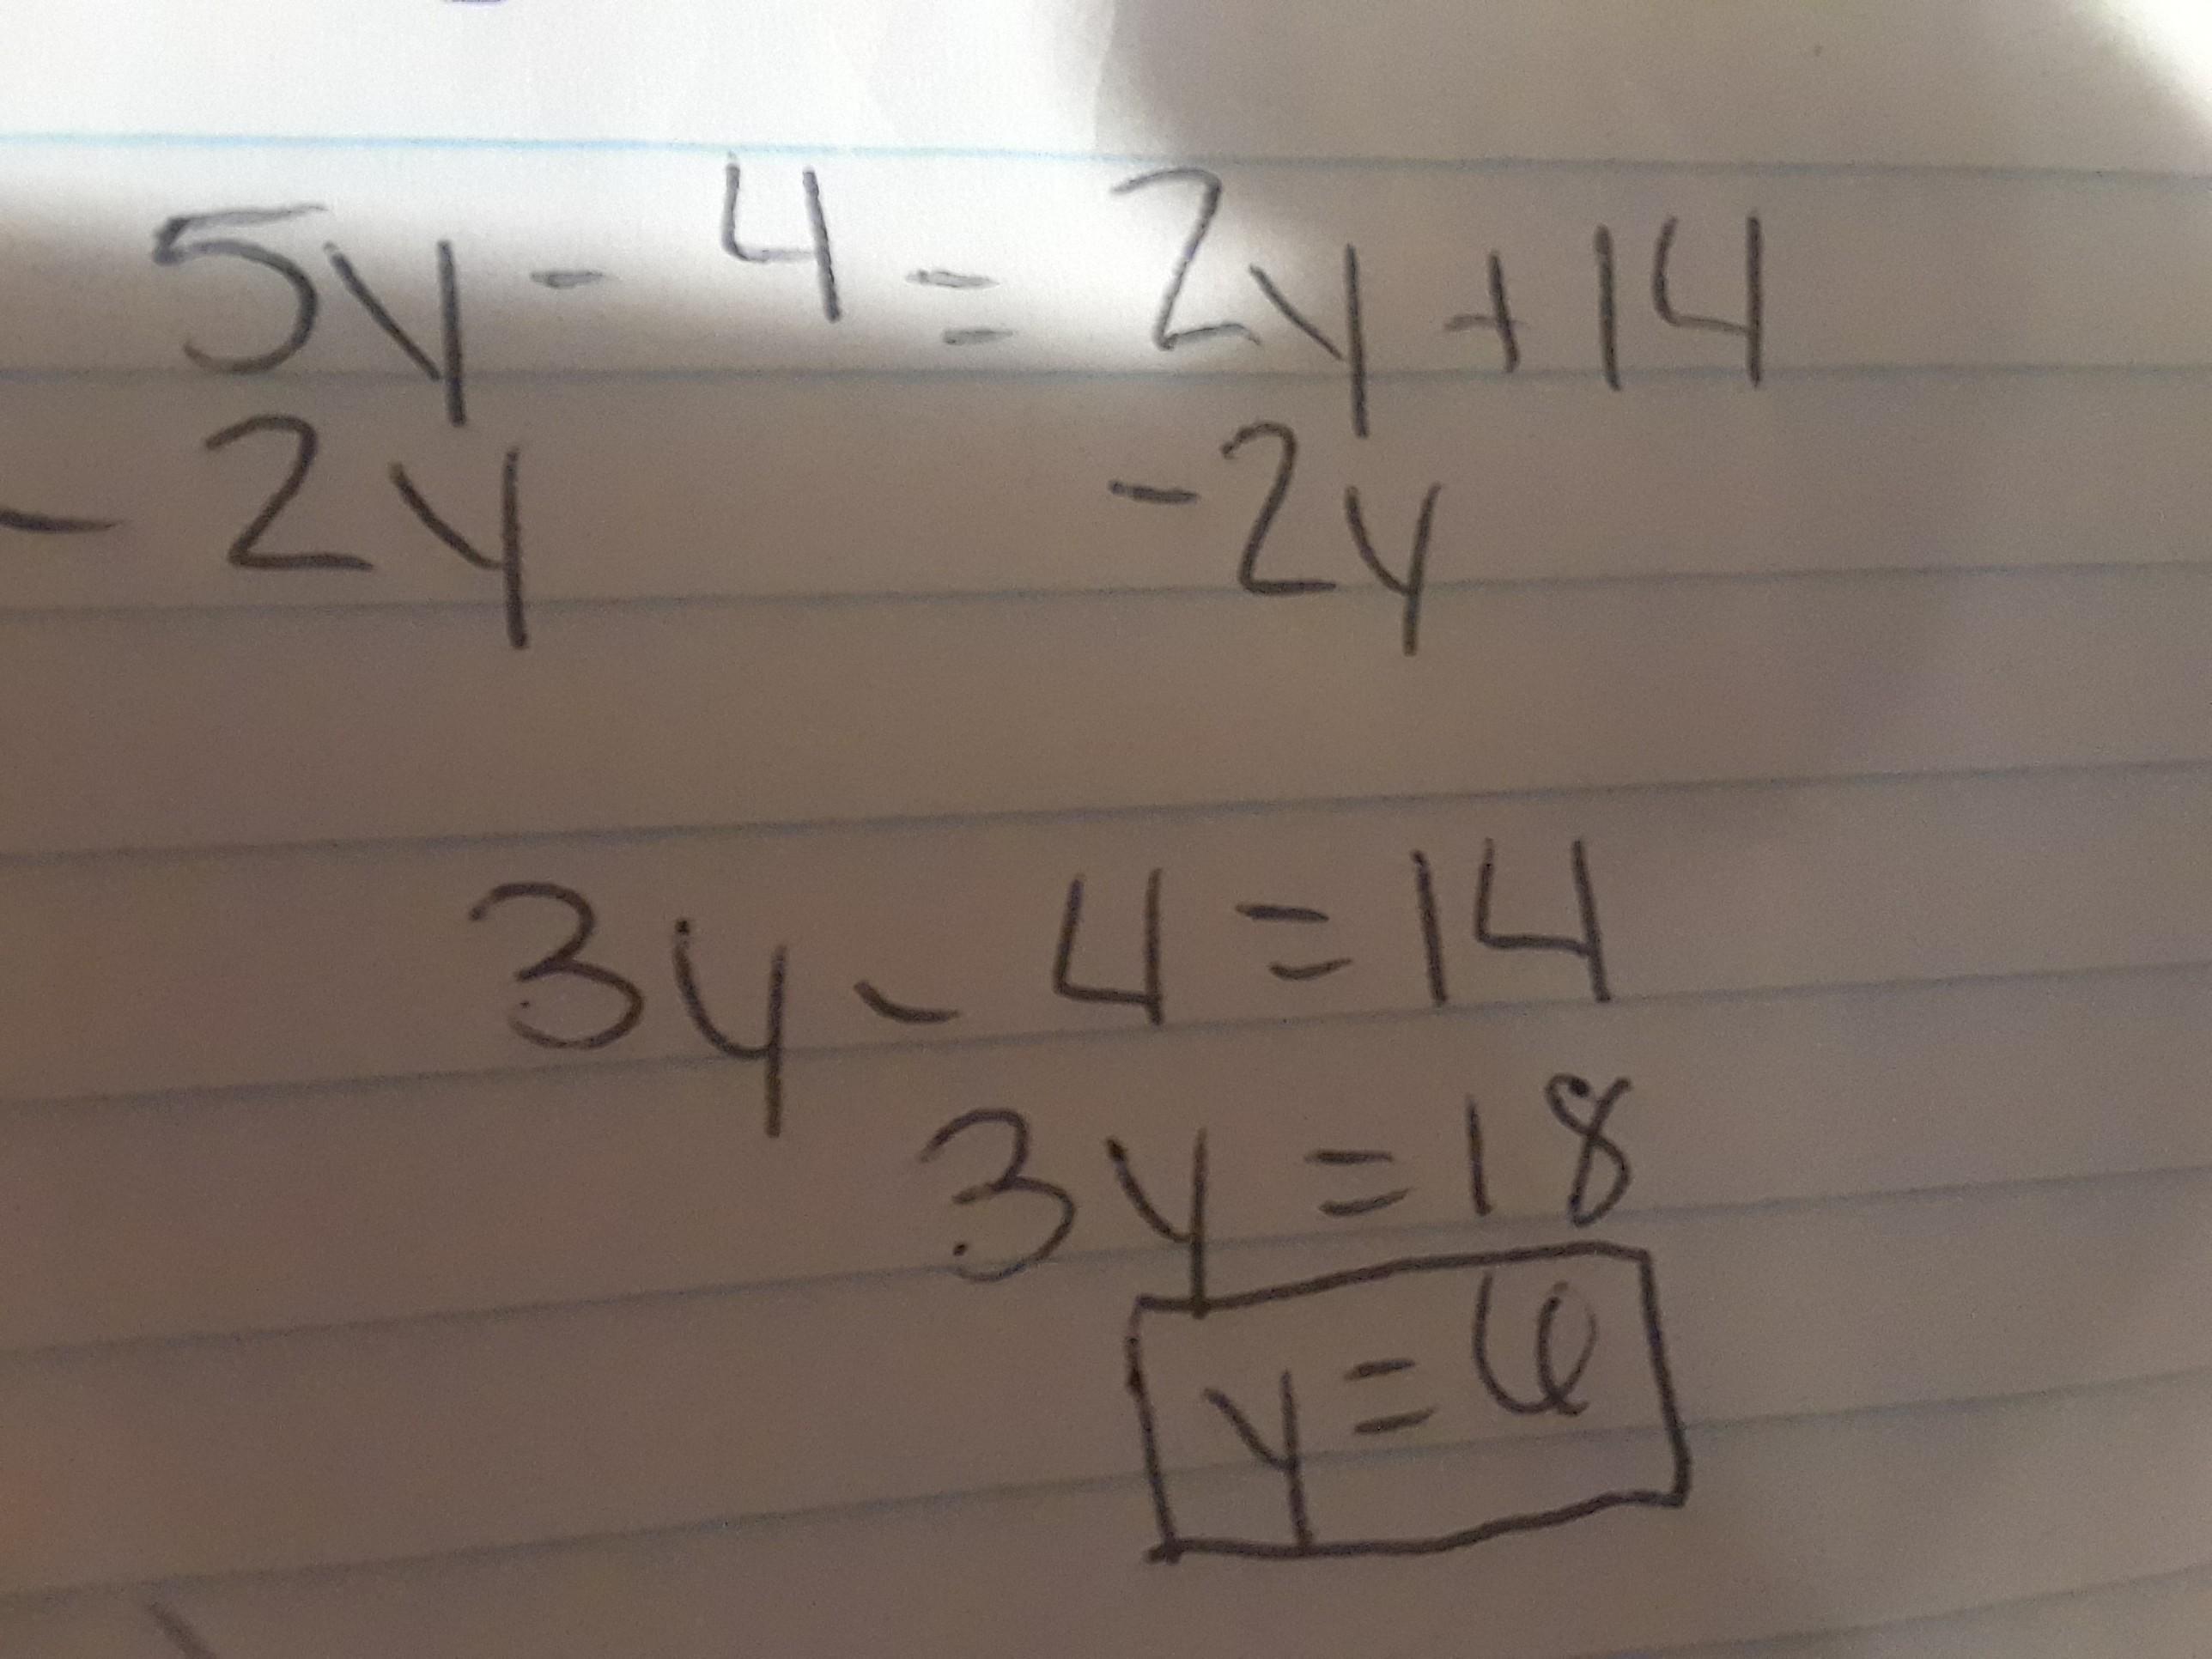 5y - 4 = 2y + 14
- 2y -2y
3y - 4 = 14
3y = 18
y = 6